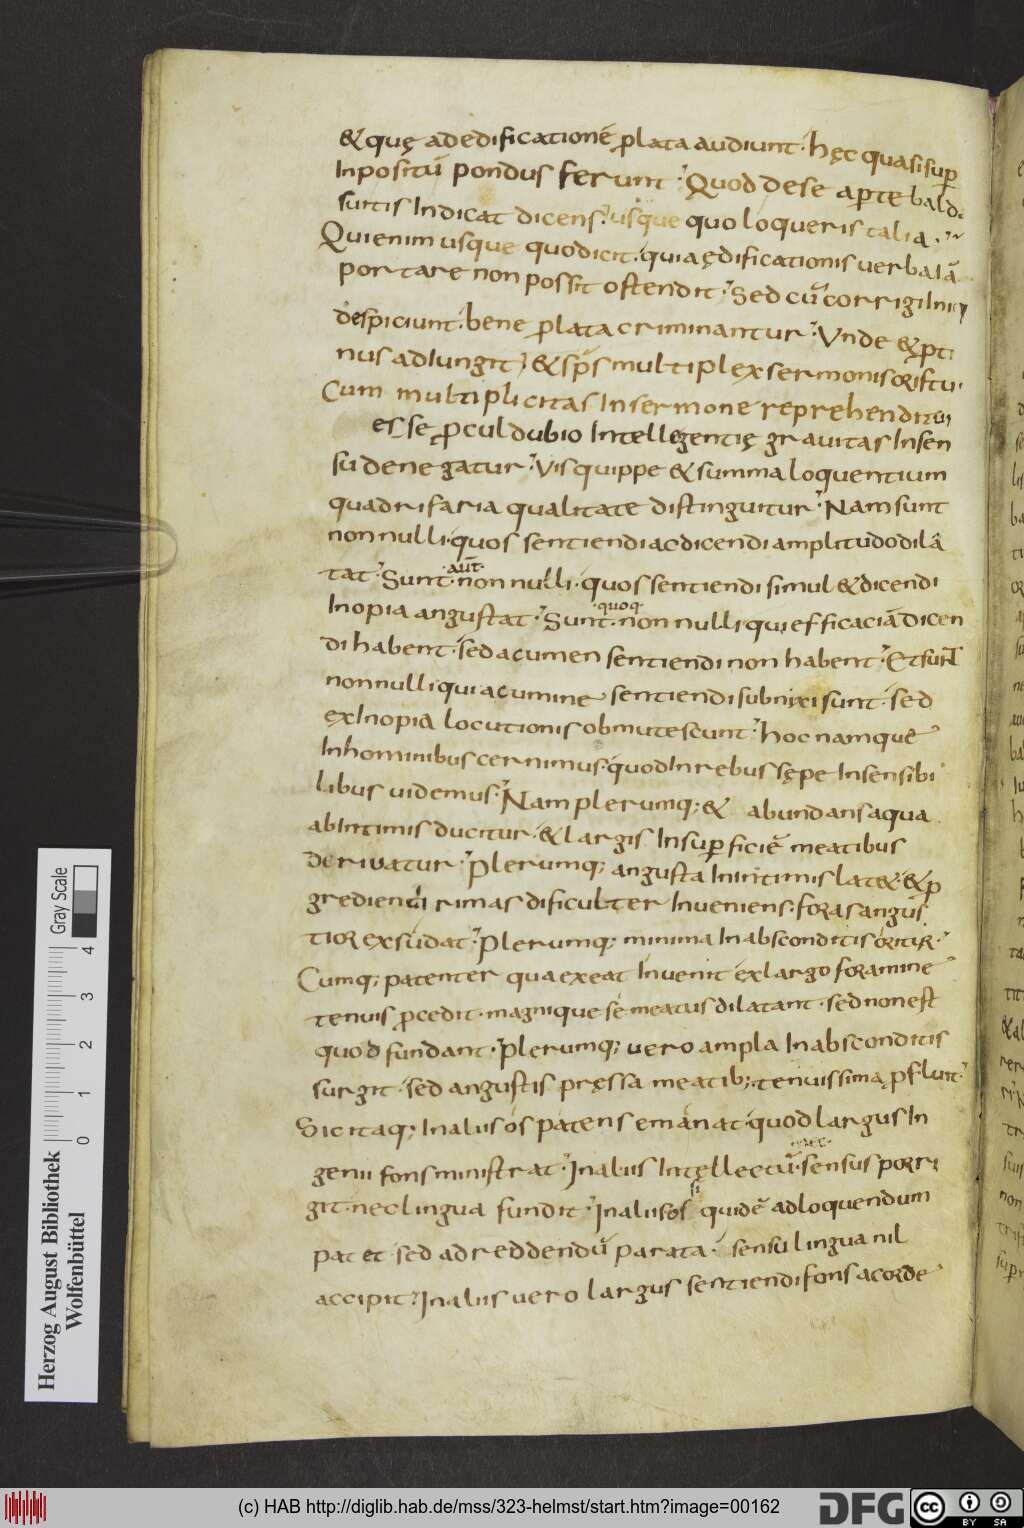 &quę adedificationē ꝓlata audiunt· hęc quasi sup̱
Inpositū pondus ferunt; Quod de se aperte bald
suitis Indicat dicens; usque quo loqueris talia·
Qui enim usque quo dicit· quia ędificationis uerba lā
portare non possit ostendit; Sed cū corrigi Iniq
despiciunt· bene ꝓlata criminantur; Vnde & ꝓti
nus adIungit; & sp̄s multiplex sermonis oris tui
Cum multiplicitas In sermone reprehenditur
esse ꝓculdubio Intellegentię grauitas In sen
su denegatur; Vis quippe & summa loquentium
quadrifaria qualitate distinguitur; Nam sunt
non nulli· quos sentiendi ac dicendi amplitudo dila
tat; Sunt· aut̄· non nulli· quos sentiendi simul & dicendi
Inopia angustat; Sunt· quoq· non nulli qui efficaciā dicen
di habent· sed acumen sentiendi non habent; Et sunt
non nulli qui acumine sentiendi subnixi sunt· sed
ex Inopia locutionis obmutescunt; hoc namque
In hominibus cernimus· quod In rebus sępe Insensibi
libus uidemus; Nam plerumq; & abundans aqua
ab Intimis ducitur· & largis In sup̱ficiē meatibus
deriuatur; Plerumq; angusta In intimis lat&· & ꝓ
gredienti rimas dificulter Inueniens· foras angus
tior exsudat; Plerumq; minima In absconditis oritur;
Cumq; patenter qua exeat Inuenit ex largo foramine
tenuis ꝓcedit· magnique se meatus dilatant· sed non est
quod fundant; Plerumq; uero ampla In absconditis
surgit· sed angustis pręssa meatib; tenuissima ꝓfluit;
Sic itaq; In aliis os patens emanat· quod largus In
genii fons ministrat; In aliis Intęllectū· sensus porri
git· nec lingua fundit; In aliis os quidē ad loquendum
patet· sed ad reddendū parata· sensu lingua nil
accipit; In aliis uero largus sentiendi fons a corde
Herzog August Bibliothek
Wolfenbüttel
0 1 2 3 4
Gray Scale
(c) HAB http://diglib.hab.de/mss/323-helmst/start.htm?image=00162
DFG
cc BY SA